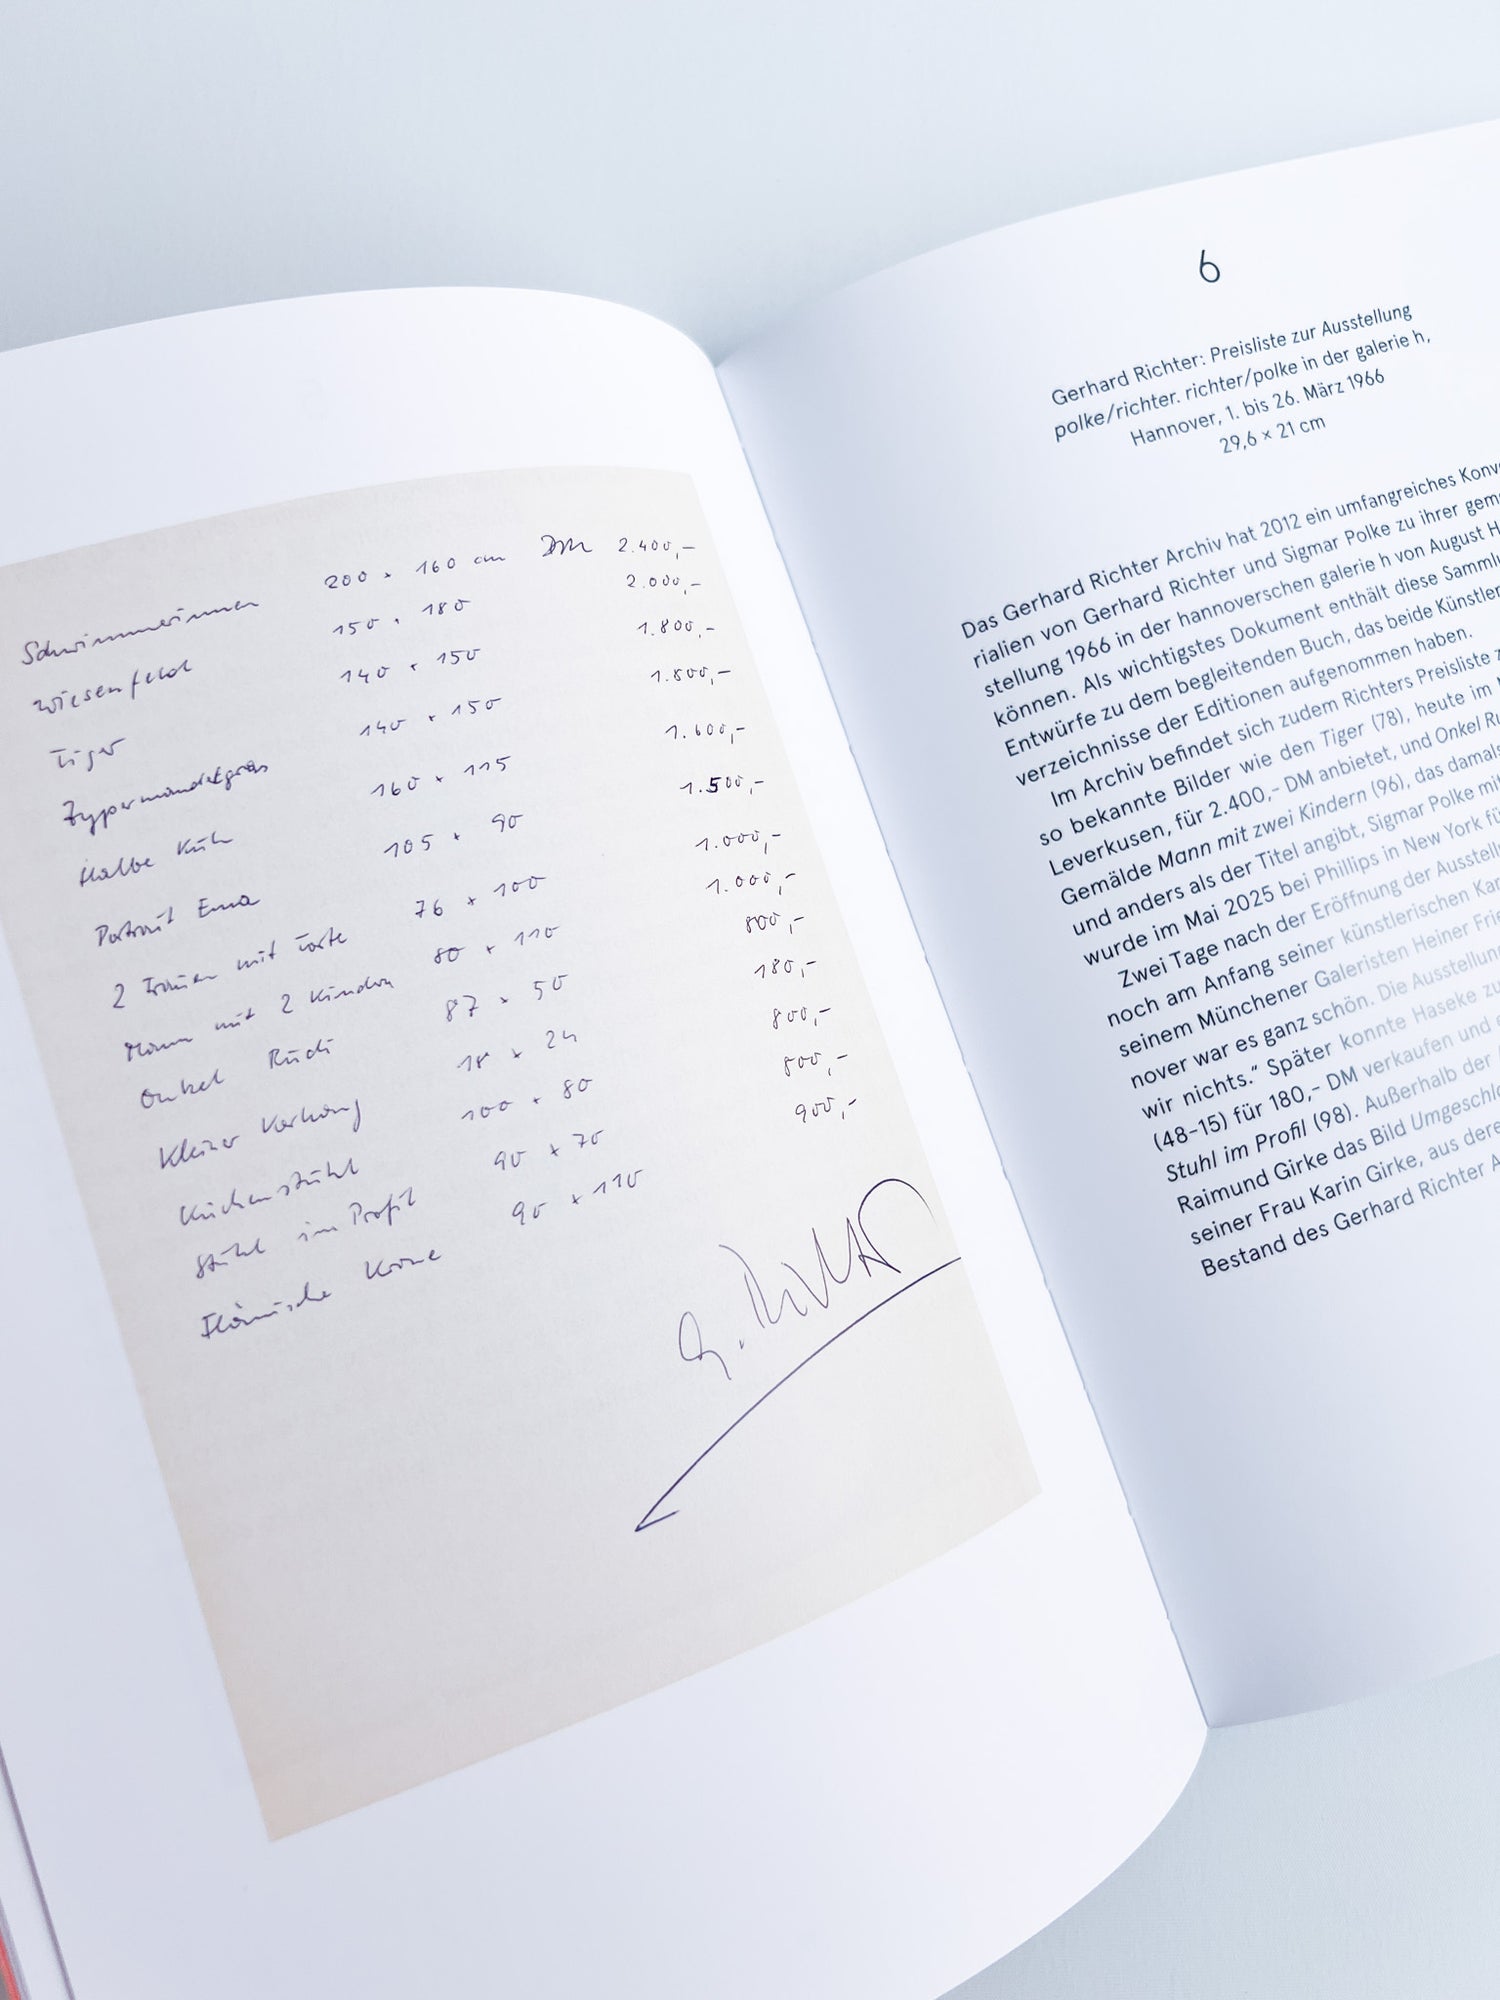 Schwimmerinnen 200 × 160 cm DM 2.400,-
Wiesenfeld 150 × 180 2.000,-
Tiger 140 × 150 1.800,-
Zypermandelgras 140 × 150 1.800,-
Halbe Kuh 160 × 115 1.600,-
Portrait Ema 105 × 90 1.500,-
2 Frauen mit Torte 76 × 100 1.000,-
Mann mit 2 Kindern 80 × 110 1.000,-
Onkel Rudi 87 × 50 800,-
Kleiner Vorhang 18 × 24 180,-
Küchenstuhl 100 × 80 800,-
Stuhl im Profil 90 × 70 800,-
Flämische Krone 90 × 110 900,-
G. Richter
6
Gerhard Richter: Preisliste zur Ausstellung
polke/richter. richter/polke in der galerie h,
Hannover, 1. bis 26. März 1966
29,6 × 21 cm
Das Gerhard Richter Archiv hat 2012 ein umfangreiches
rialien von Gerhard Richter und Sigmar Polke zu ihrer
stellung 1966 in der hannoverschen galerie h von August
können. Als wichtigstes Dokument enthält diese
Entwürfe zu dem begleitenden Buch, das beide Künstler
verzeichnisse der Editionen aufgenommen haben.
Im Archiv befindet sich zudem Richters Preisliste
so bekannte Bilder wie den Tiger (78), heute im
Leverkusen, für 2.400,- DM anbietet, und Onkel
Gemälde Mann mit zwei Kindern (96), das damals
und anders als der Titel angibt, Sigmar Polke
wurde im Mai 2025 bei Phillips in New York
Zwei Tage nach der Eröffnung der
noch am Anfang seiner künstlerischen
seinem Münchener Galeristen Heiner
nover war es ganz schön. Die Ausstellung
wir nichts." Später konnte Haseke
(48-15) für 180,- DM verkaufen und
Stuhl im Profil (98). Außerhalb der
Raimund Girke das Bild
seiner Frau Karin Girke, aus
Bestand des Gerhard Richter